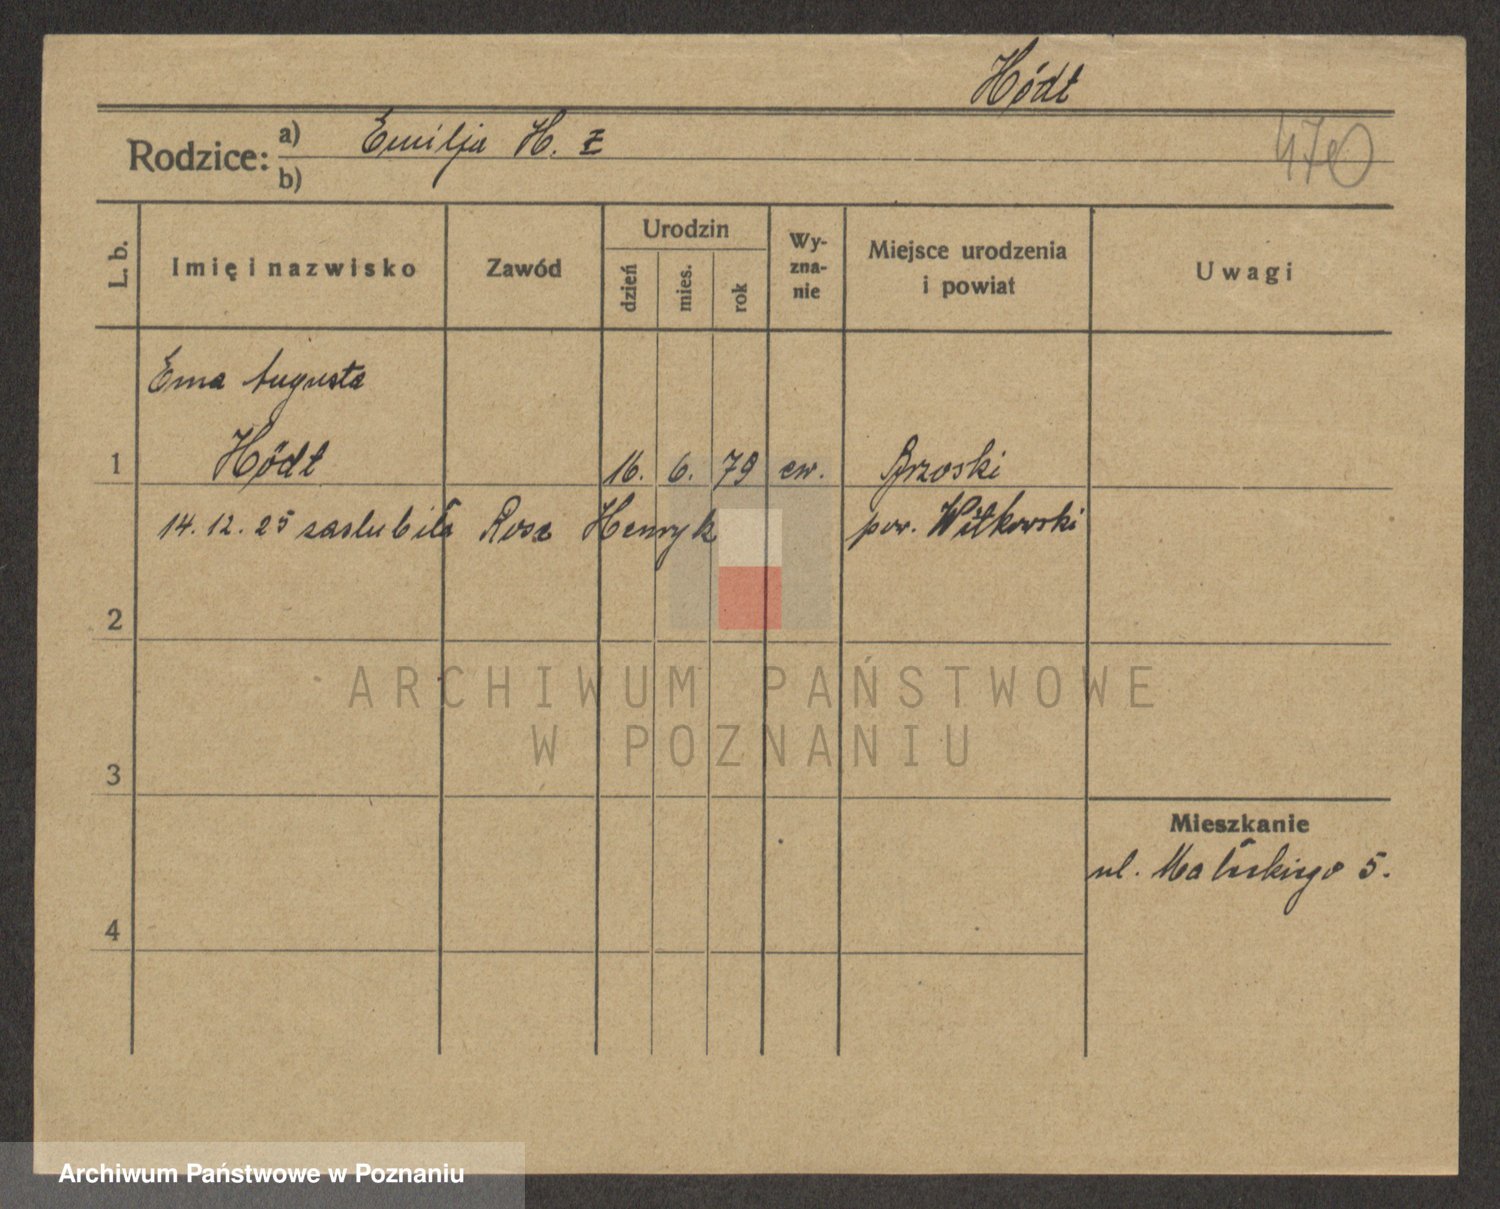 Hödt
Rodzice: a) Emilja H. z
b)
470
L. b.
Imię i nazwisko
Zawód
Urodzin
dzień
mies.
rok
Wy-
zna-
nie
Miejsce urodzenia
i powiat
Uwagi
Erna Augusta
1 Hödt 16. 6. 79 ew. Brzoski
14.12.25 zaślubiła Rosz Henryk pow. Witkowski
2
3
Mieszkanie
ul. 5.
4
ARCHIWUM PAŃSTWOWE
W POZNANIU
Archiwum Państwowe w Poznaniu